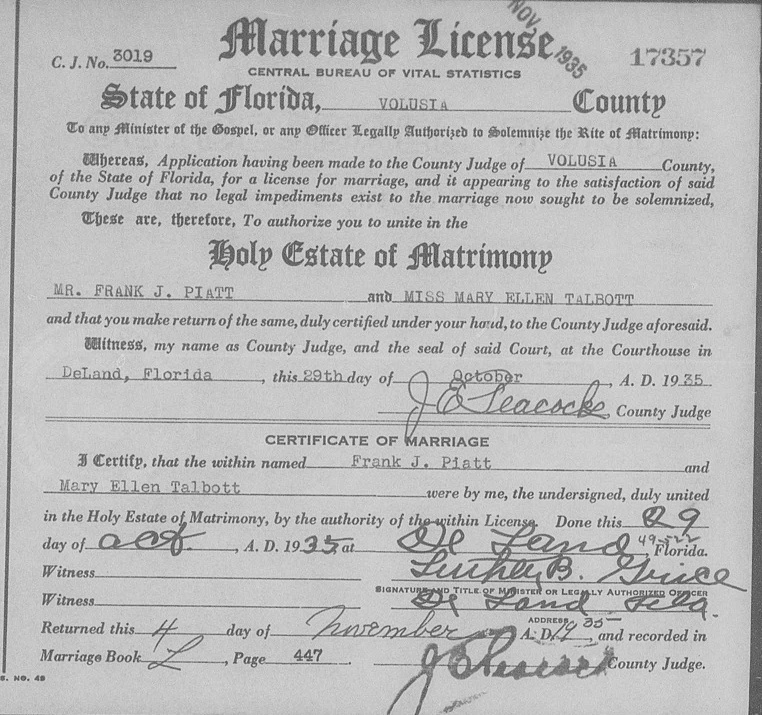 NOV 1935
Marriage License
17357
C. J. No. 3019
CENTRAL BUREAU OF VITAL STATISTICS
State of Florida, VOLUSIA County
To any Minister of the Gospel, or any Officer Legally Authorized to Solemnize the Rite of Matrimony:
Whereas, Application having been made to the County Judge of VOLUSIA County,
of the State of Florida, for a license for marriage, and it appearing to the satisfaction of said
County Judge that no legal impediments exist to the marriage now sought to be solemnized,
These are, therefore, To authorize you to unite in the
Holy Estate of Matrimony
MR. FRANK J. PIATT and MISS MARY ELLEN TALBOTT
and that you make return of the same, duly certified under your hand, to the County Judge aforesaid.
Witness, my name as County Judge, and the seal of said Court, at the Courthouse in
DeLand, Florida, this 29th day of October, A. D. 1935
J E Peacock County Judge
CERTIFICATE OF MARRIAGE
I Certify, that the within named Frank J. Piatt and
Mary Ellen Talbott were by me, the undersigned, duly united
in the Holy Estate of Matrimony, by the authority of the within License. Done this 29
day of Oct, A. D. 1935 at De Land, Florida.
Witness Luther B. Grice
SIGNATURE AND TITLE OF MINISTER OR LEGALLY AUTHORIZED OFFICER
Witness De Land Fla.
ADDRESS
Returned this 4 day of November A. D. 1935, and recorded in
Marriage Book L, Page 447 J E Peacock County Judge.
S. NO. 49